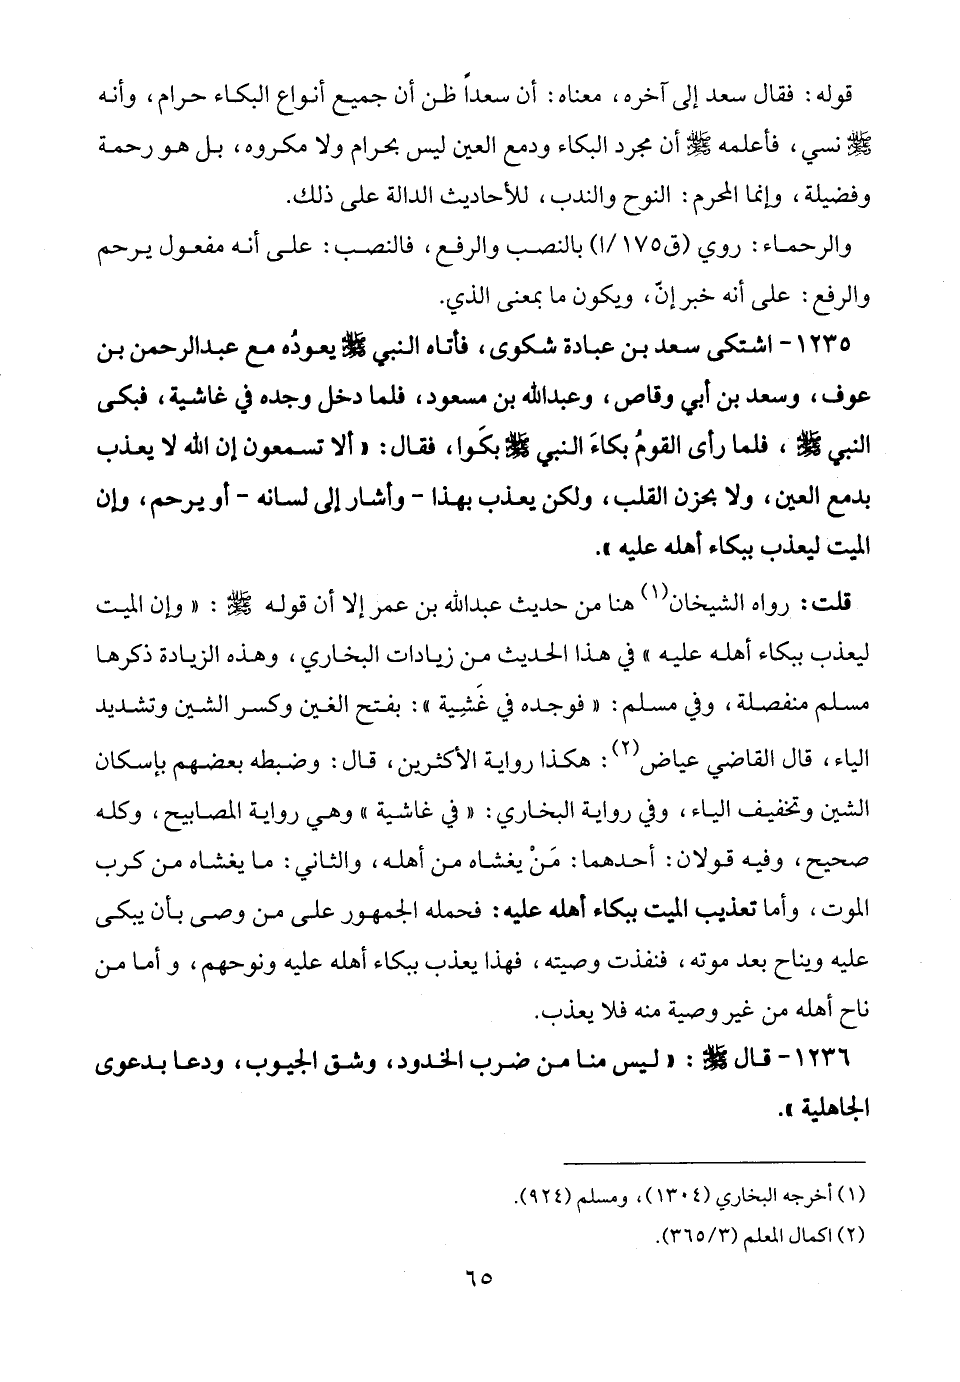 قوله: فقال سعد إلى آخره، معناه: أن سعداً ظن أن جميع أنواع البكاء حرام، وأنه
ﷺ نسي، فأعلمه ﷺ أن مجرد البكاء ودمع العين ليس بحرام ولا مكروه، بل هو رحمة
وفضيلة، وإنما المحرم: النوح والندب، للأحاديث الدالة على ذلك.
والرحماء: روي (ق١٧٥/ا) بالنصب والرفع، فالنصب: على أنه مفعول يرحم
والرفع: على أنه خبر إنّ، ويكون ما بمعنى الذي.
١٢٣٥- اشتكى سعد بن عبادة شكوى، فأتاه النبي ﷺ يعودُه مع عبدالرحمن بن
عوف، وسعد بن أبي وقاص، وعبدالله بن مسعود، فلما دخل وجده في غاشية، فبكى
النبي ﷺ، فلما رأى القومُ بكاءَ النبي ﷺ بكَوا، فقال: « ألا تسمعون إن الله لا يعذب
بدمع العين، ولا بحزن القلب، ولكن يعذب بهذا - وأشار إلى لسانه - أو يرحم، وإن
الميت ليعذب ببكاء أهله عليه ».
قلت: رواه الشيخان(١) هنا من حديث عبدالله بن عمر إلا أن قوله ﷺ: « وإن الميت
ليعذب ببكاء أهله عليه » في هذا الحديث من زيادات البخاري، وهذه الزيادة ذكرها
مسلم منفصلة، وفي مسلم: « فوجده في غَشِية »: بفتح الغين وكسر الشين وتشديد
الياء، قال القاضي عياض(٢): هكذا رواية الأكثرين، قال: وضبطه بعضهم بإسكان
الشين وتخفيف الياء، وفي رواية البخاري: « في غاشية » وهي رواية المصابيح، وكله
صحيح، وفيه قولان: أحدهما: مَنْ يغشاه من أهله، والثاني: ما يغشاه من كرب
الموت، وأما تعذيب الميت ببكاء أهله عليه: فحمله الجمهور على من وصى بأن يبكى
عليه ويناح بعد موته، فنفذت وصيته، فهذا يعذب ببكاء أهله عليه ونوحهم، و أما من
ناح أهله من غير وصية منه فلا يعذب.
١٢٣٦- قال ﷺ: « ليس منا من ضرب الخدود، وشق الجيوب، ودعا بدعوى
الجاهلية ».
(١) أخرجه البخاري (١٣٠٤)، ومسلم (٩٢٤).
(٢) اكمال المعلم (٣٦٥/٣).
٦٥